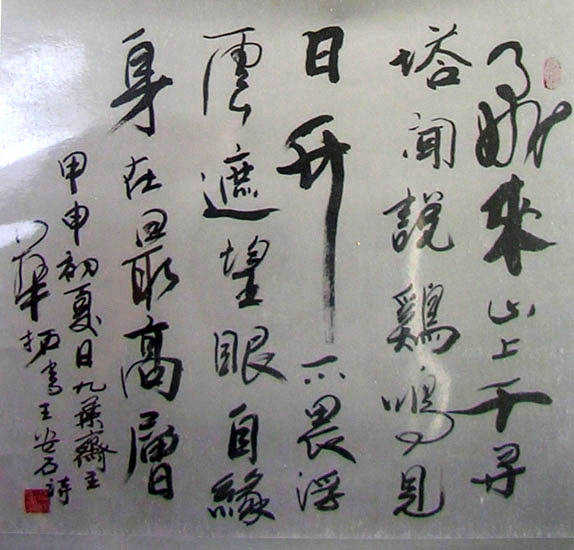 飛來山上千尋
塔聞説鷄鳴見
日升不畏浮
雲遮望眼自緣
身在最高層
甲申初夏日九葉齋主
書王安石詩